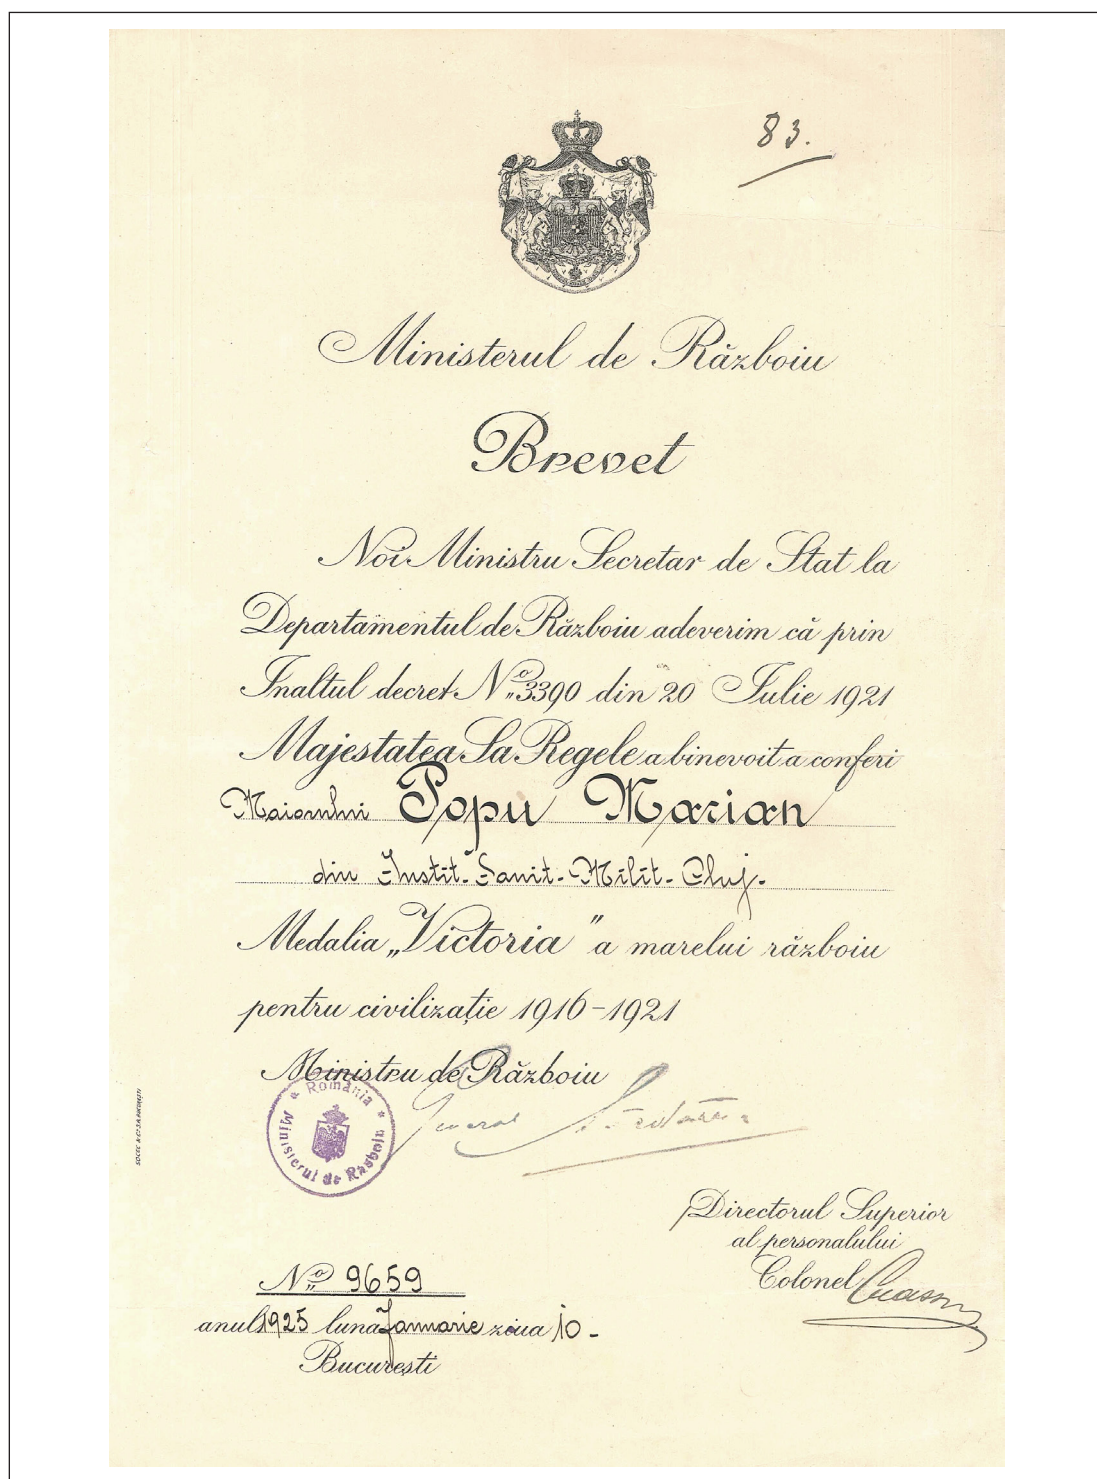 83.
Ministerul de Războiu
Brevet
Noi Ministru Secretar de Stat la
Departamentul de Războiu adeverim că prin
Inaltul decret No 3390 din 20 Iulie 1921
Majestatea Sa Regele a binevoit a conferi
Maiorului Popu Marian
din Instit. Sanit. Milit. Cluj.
Medalia „Victoria" a marelui războiu
pentru civilizație 1916-1921
Ministru de Războiu
România
Ministerul de Rasboiu
General
SOCEC & Co S.A. BUCUREȘTI
Directorul Superior
al personalului
Colonel
No 9659
anul 1925 luna Januarie ziua 10 -
București